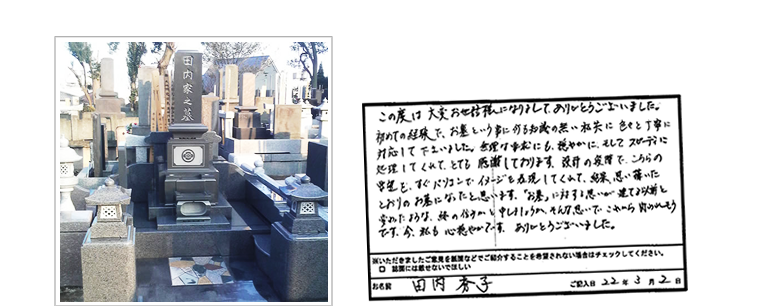 田内家之墓
この度は大変お世話様になりまして、ありがとうございました。
初めての経験で、お墓という事に何も知識の無い私共に色々と丁寧に
対応して下さいました。無理な要求にも、穏やかに、そして スピーディに
処理してくれて、とても 感謝しております。設計の段階で、こちらの
希望を、すぐパソコンでイメージを表現してくれて、結果、思い描いた
とおりのお墓になったと思います。「お墓」に対する思いが 建てる以前と
変わったような、
です。今、私も 心穏やかです。ありがとうございました。
※いただきましたご意見を紙面などでご紹介することを希望されない場合はチェックしてください。
□ 紙面には載せないでほしい
お名前 田内 秀子 ご記入日 22年 3月 2日